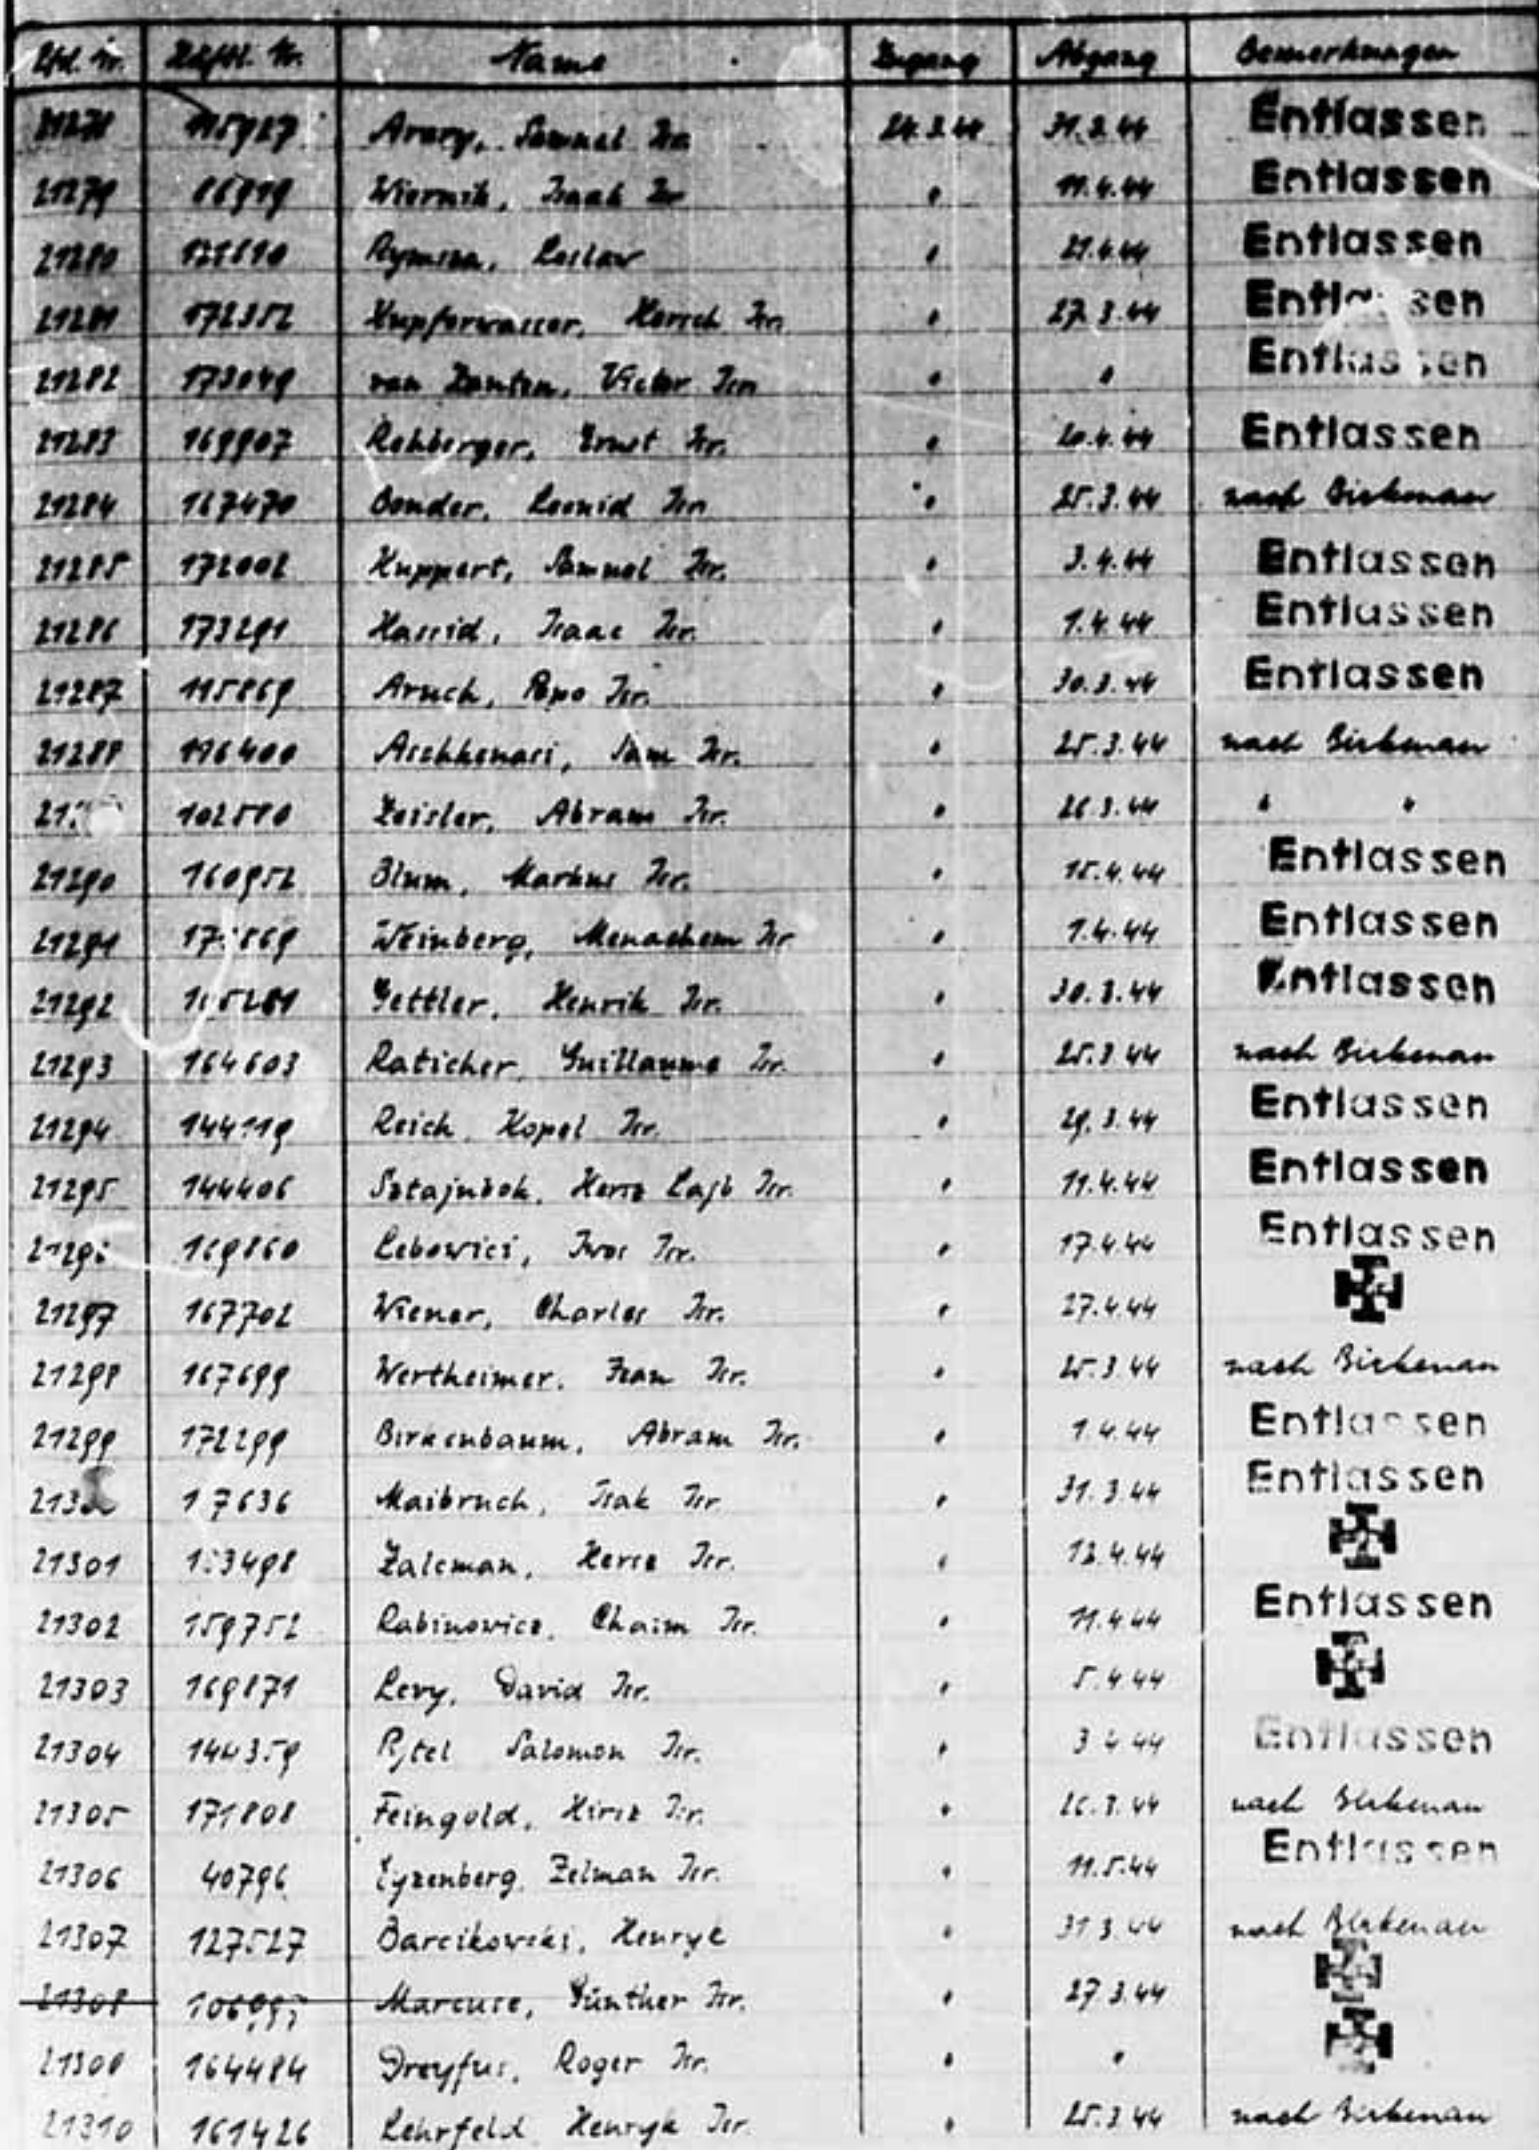 Lfd. Nr. Häftl. Nr. Name Zugang Abgang Bemerkungen
21278 115927 Arary, Samuel Isr. 24.3.44 31.3.44 Entlassen
21279 Wiernik, Isaak Isr " 11.4.44 Entlassen
21280 Rymsza, " 21.4.44 Entlassen
21281 172352 Kupferwasser, Hersch Isr. " 27.3.44 Entlassen
21282 173049 van Zanten, Victor Isr. " " Entlassen
21283 169907 Rehberger, Ernst Isr. " 20.4.44 Entlassen
21284 167470 Bonder, Leonid Isr. " 25.3.44 nach Birkenau
21285 172002 Huppert, Samuel Isr. " 3.4.44 Entlassen
21286 173291 Hassid, Isaac Isr. " 1.4.44 Entlassen
21287 115869 Aruch, Pepo Isr. " 30.3.44 Entlassen
21288 116400 Aschkenasi, Sam Isr. " 25.3.44 nach Birkenau
102580 Zeisler, Abram Isr. " 26.3.44 " "
21290 160952 Blum, Markus Isr. " 15.4.44 Entlassen
21291 Weinberg, Menachem Isr " 1.4.44 Entlassen
21292 Gettler, Henrik Isr. " 30.3.44 Entlassen
21293 164603 Raticher, Guillaume Isr. " 25.3.44 nach Birkenau
21294 144119 Reich, Kopel Isr. " 29.3.44 Entlassen
21295 144406 Sztajnbok, Hersz Lajb Isr. " 11.4.44 Entlassen
169860 Lebovici, Isr. " 17.4.44 Entlassen
21297 167702 Wiener, Charles Isr. " 27.4.44
21298 167699 Wertheimer, Jean Isr. " 25.3.44 nach Birkenau
21299 172299 Birkenbaum, Abram Isr. " 1.4.44 Entlassen
Maibruch, Isak Isr. " 31.3.44 Entlassen
21301 Zalcman, Hersz Isr. " 12.4.44
21302 159752 Rabinowicz, Chaim Isr. " 11.4.44 Entlassen
21303 169871 Levy, David Isr. " 5.4.44
21304 144359 Rytel Salomon Isr. " 3.4.44 Entlassen
21305 171808 Feingold, Hirsz Isr. " 26.3.44 nach Birkenau
21306 40796 Eyzenberg, Zelman Isr. " 11.5.44 Entlassen
21307 127527 Barcikowski, Henryk " 31.3.44 nach Birkenau
21308 Marcuse, Günther Isr. " 27.3.44
164484 Dreyfus, Roger Isr. " "
21310 161426 Lehrfeld Henryk Isr. " 25.3.44 nach Birkenau